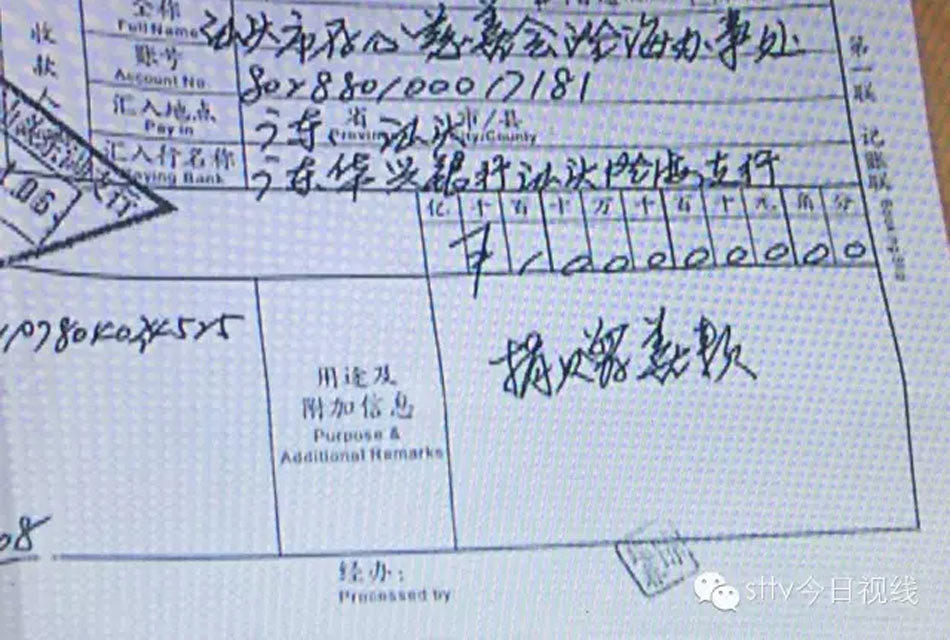 全称 汕头市存心慈善会涂海办事处
Full Name
收款人
账号 802880100017181
Account No.
汇入地点 广东 省 汕头 市/县
Pay in Province City/County
汇入行名称 广东华兴银行汕头涂海支行
Paying Bank
第一联 记账联
支行
.06
亿 千 百 十 万 千 百 十 元 角 分
¥ 1 0 0 0 0 0 0 0 0
用途及
附加信息
Purpose &
Additional Remarks
捐赠善款
08
经办:
Processed by
sttv今日视线